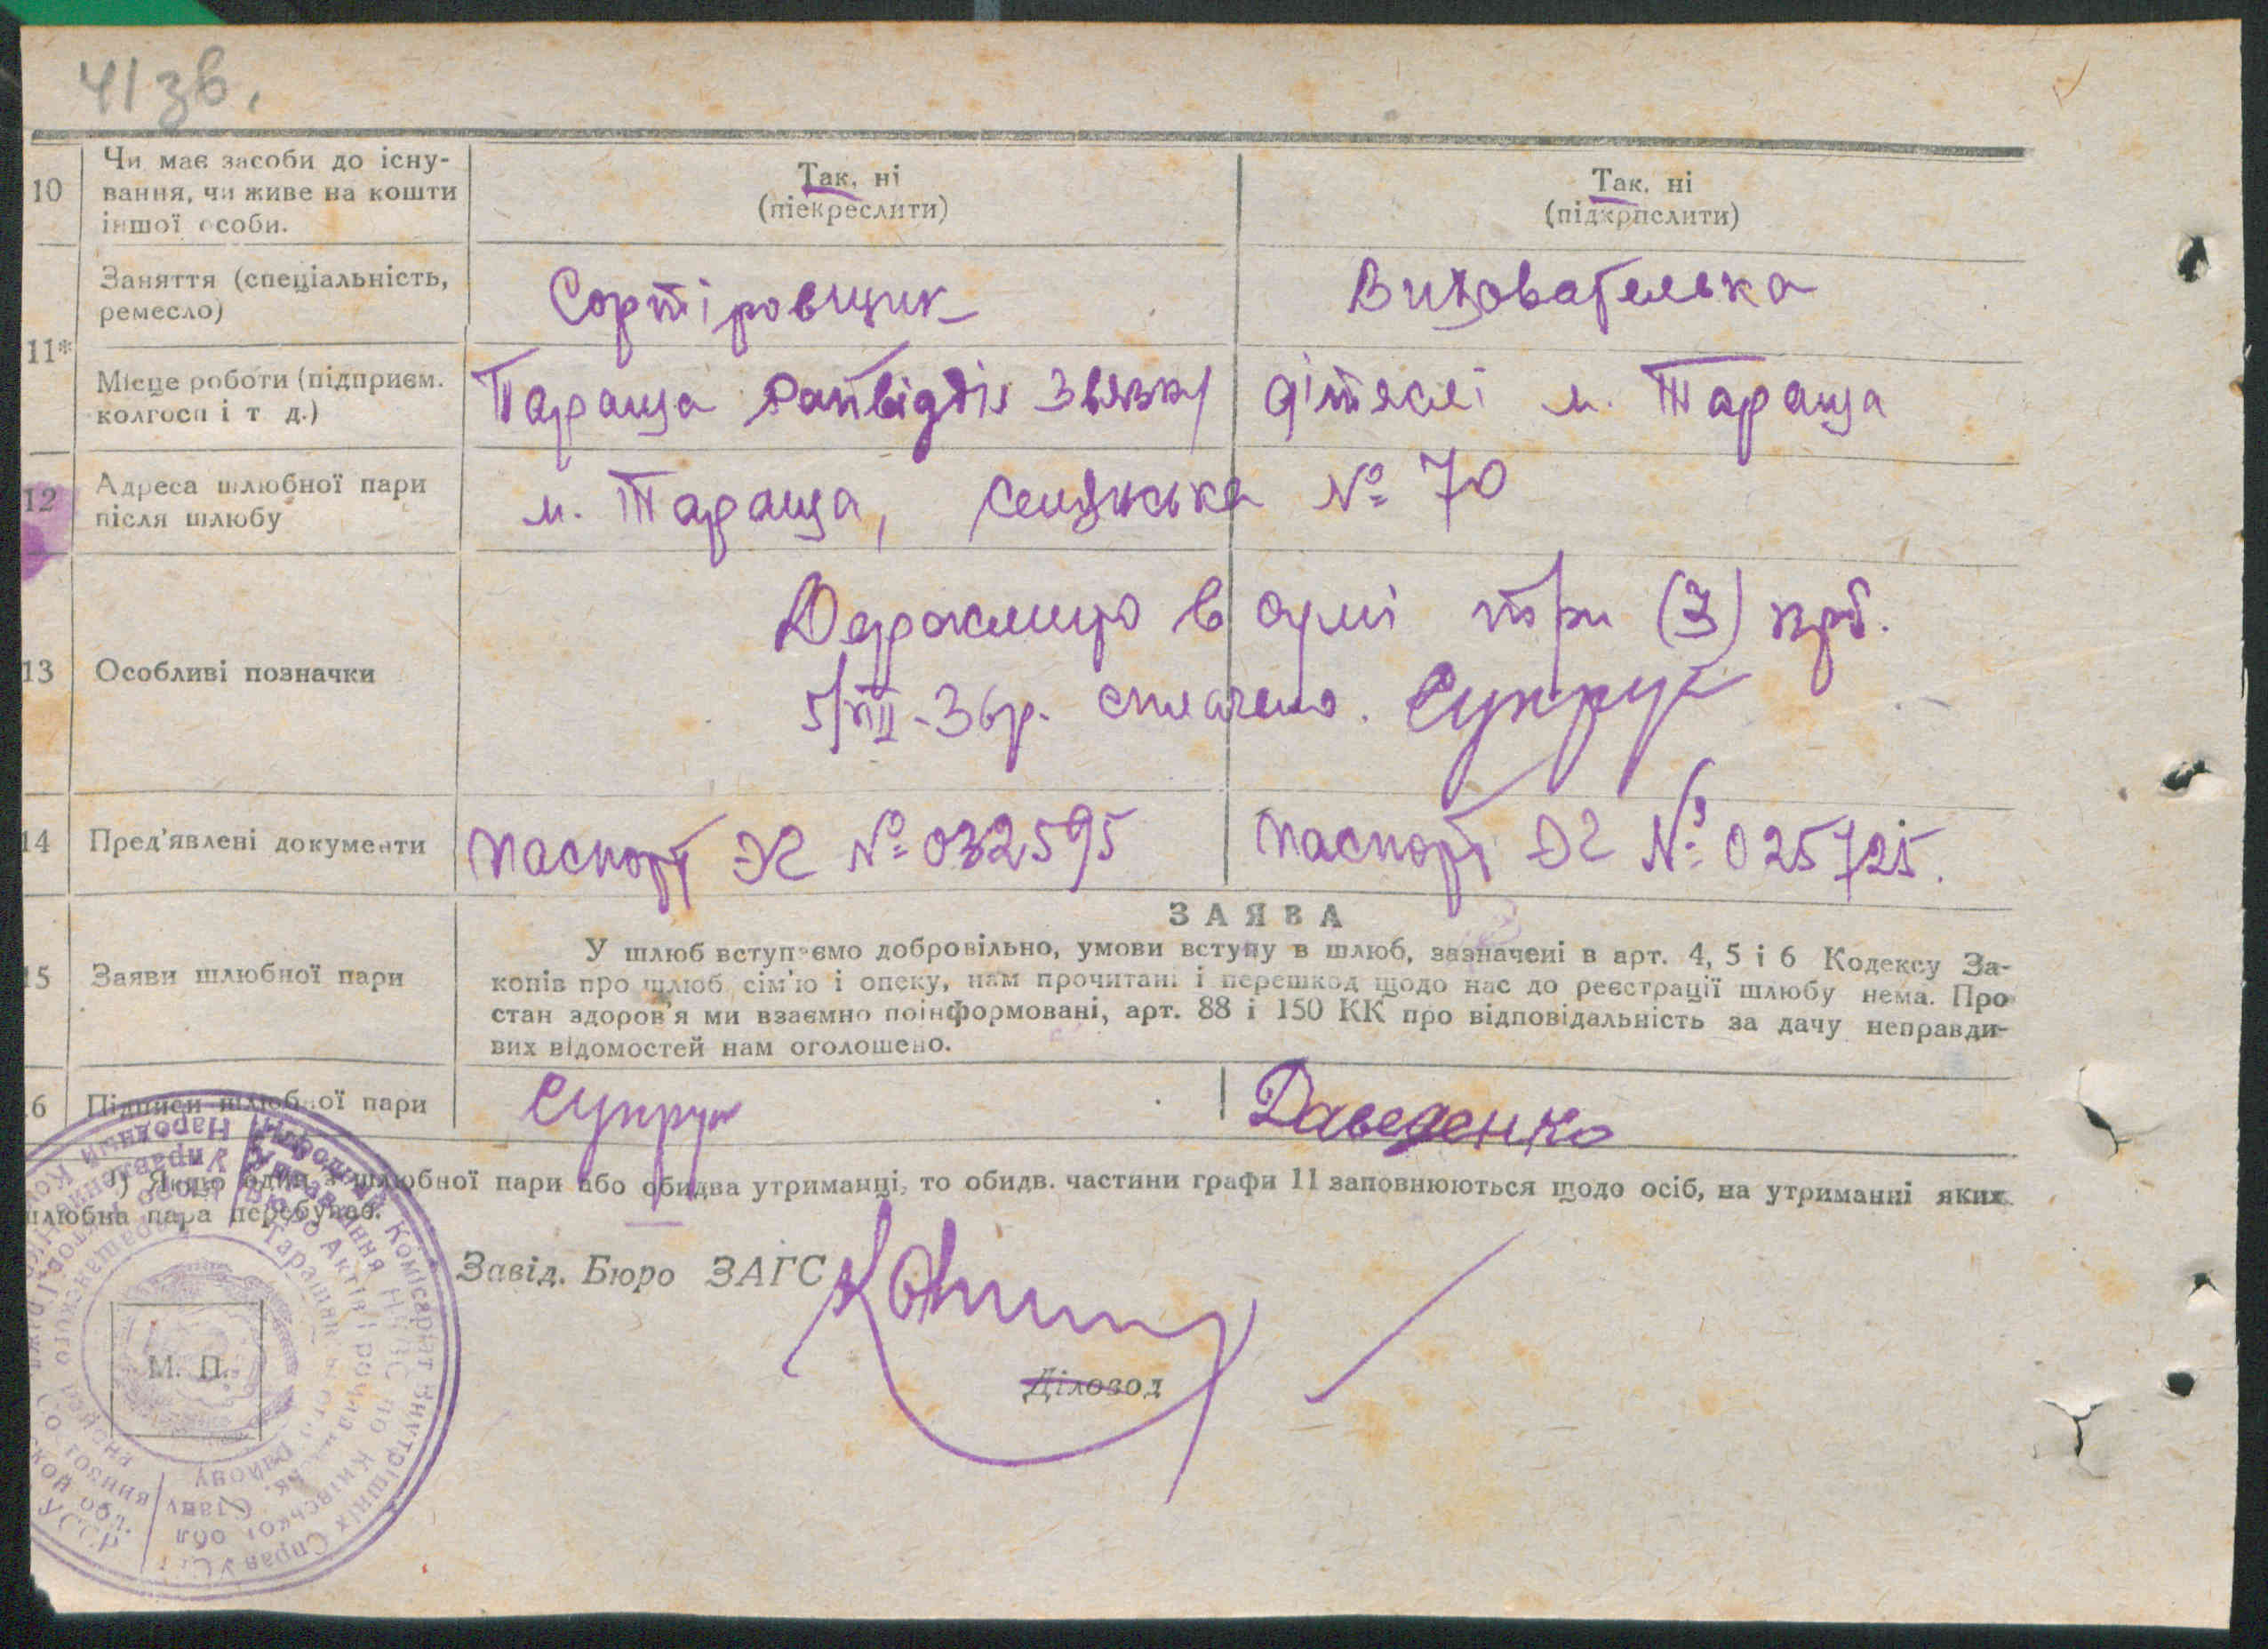 41 зв.
10
Чи має засоби до існу-
вання, чи живе на кошти
іншої особи.
Так, ні
(піекреслити)
Так, ні
(підкрпслити)
11*
Заняття (спеціальність,
ремесло)
Сортіровщик
Вихователька
Місце роботи (підприєм.
колгосп і т д.)
Тараща звязку
дітяслі м. Тараща
12
Адреса шлюбної пари
після шлюбу
м. Тараща, № 70
13
Особливі позначки
Держмито в сумі три (3) крб.
5/ -36р. сплачено. Супрун
14
Пред'явлені документи
паспорт № 032595
паспорт № 025725.
15
Заяви шлюбної пари
ЗАЯВА
У шлюб вступаємо добровільно, умови вступу в шлюб, зазначені в арт. 4, 5 і 6 Кодексу За-
конів про шлюб сім'ю і опеку, нам прочитані і перешкод щодо нас до реєстрації шлюбу нема. Про
стан здоров'я ми взаємно поінформовані, арт. 88 і 150 КК про відповідальність за дачу неправди-
вих відомостей нам оголошено.
16
Підписи шлюбної пари
Супрун
Даведенко
*) Якщо один з шлюбної пари або обидва утриманці, то обидв. частини графи 11 заповнюються щодо осіб, на утриманні яких
шлюбна пара перебуває.
Завід. Бюро ЗАГС
Діловод
М. П.